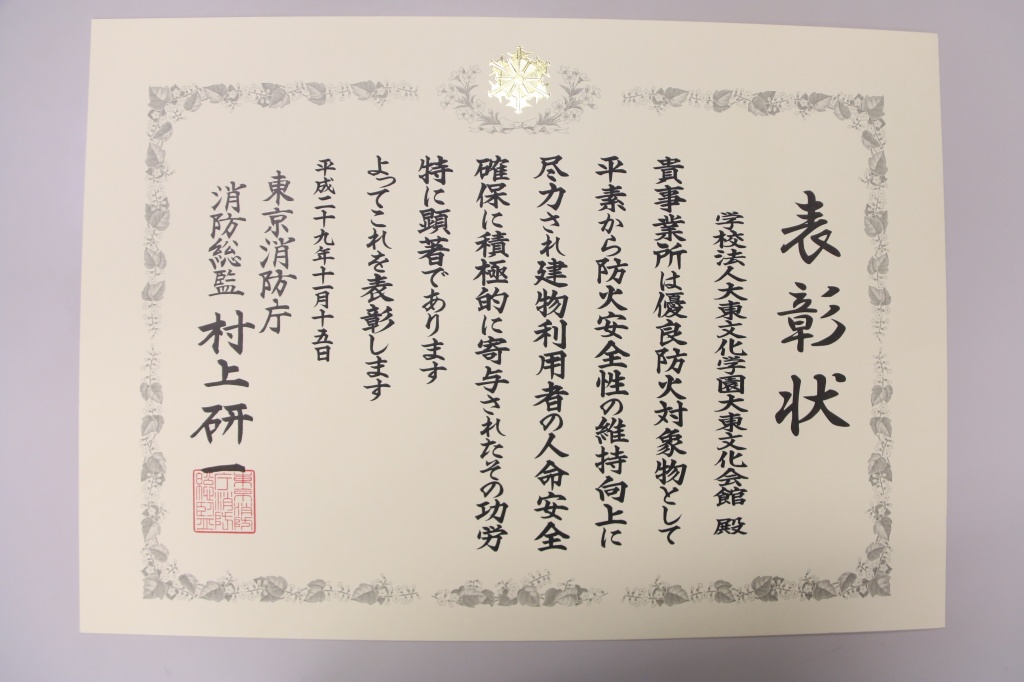 表彰状
学校法人大東文化学園大東文化会館 殿
貴事業所は優良防火対象物として
平素から防火安全性の維持向上に
尽力され建物利用者の人命安全
確保に積極的に寄与されたその功労
特に顕著であります
よってこれを表彰します
平成二十九年十一月十五日
東京消防庁
消防総監 村上研一
東京消防
庁消防
総監之印